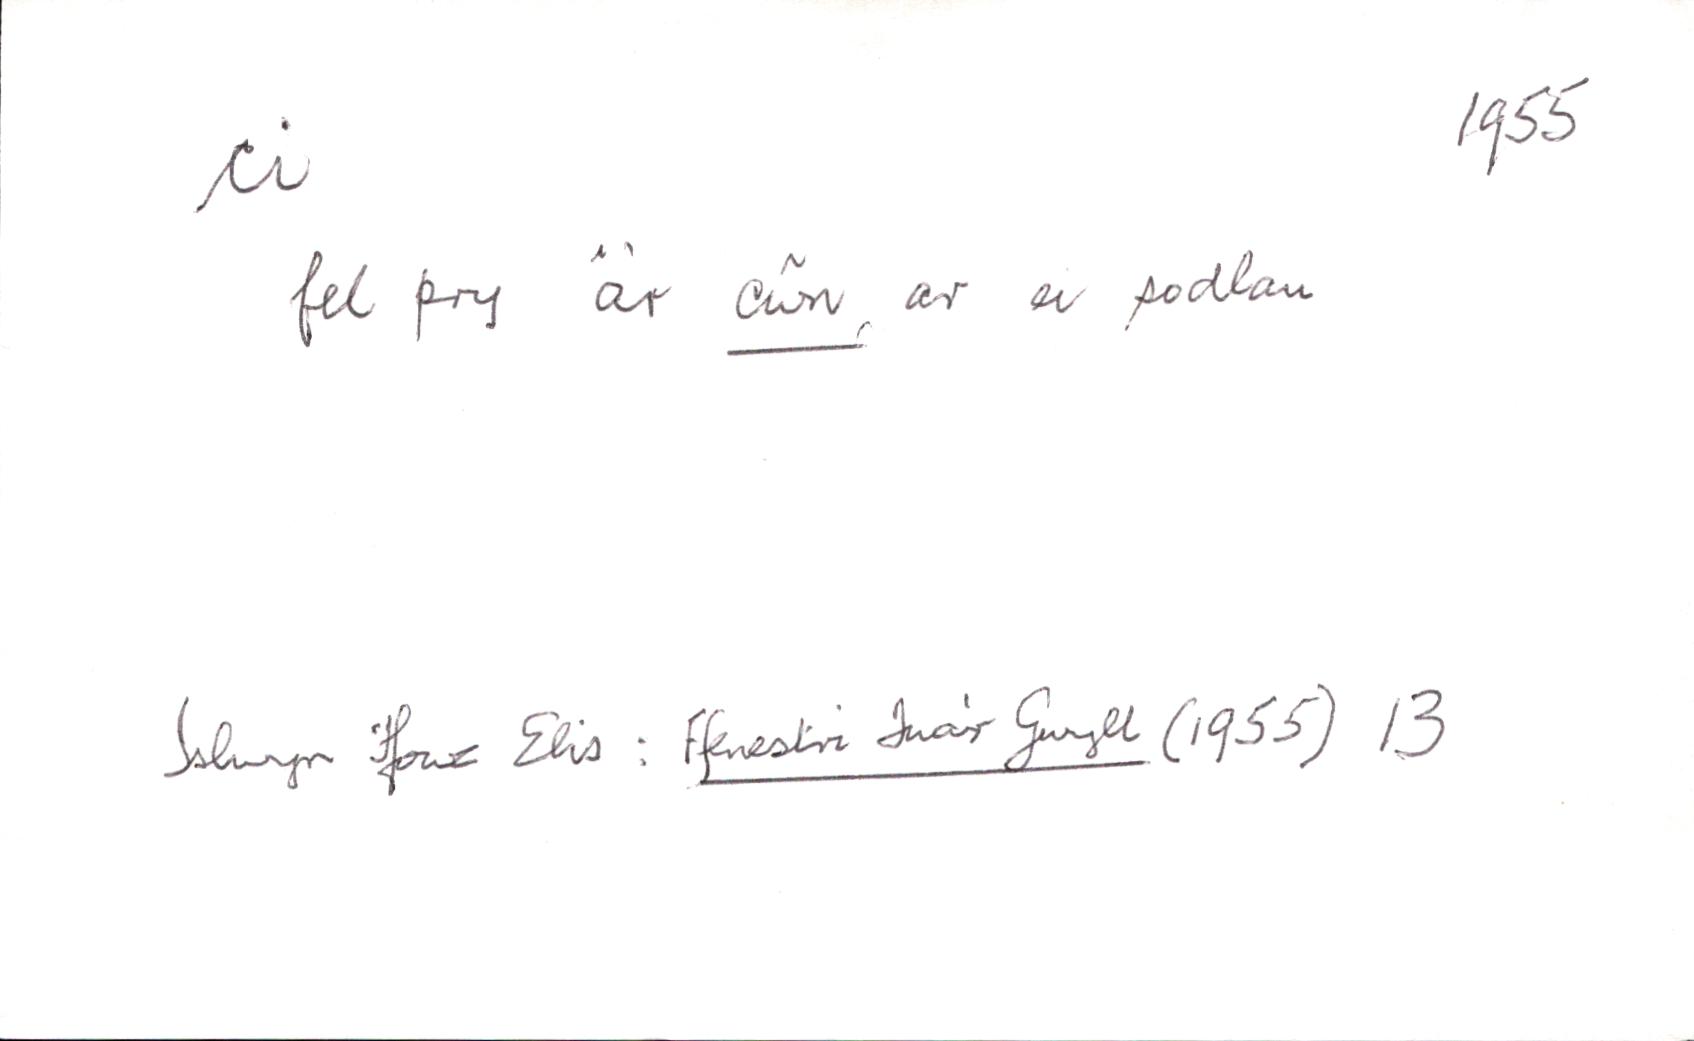 ci 1955
fel pry â'r cŵn ar ei sodlau
Islwyn Ffowc Elis: Ffenestri Tua'r Gwyll (1955) 13